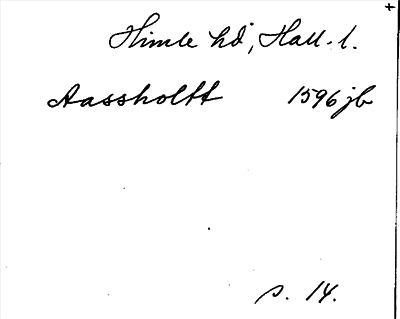 Himle hd, Hall. l.
Aassholtt 1596 jb
s. 14.